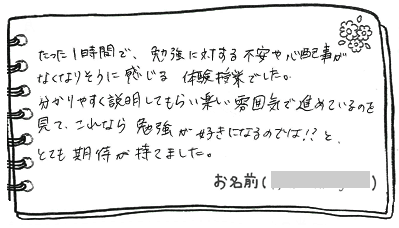 たった1時間で、勉強に対する不安や心配事が
なくなりそうに感じる 体験授業でした。
分かりやすく説明してもらい楽しい雰囲気で進めているのを
見て、これなら勉強が好きになるのでは!?と、
とても期待が持てました。
お名前( )